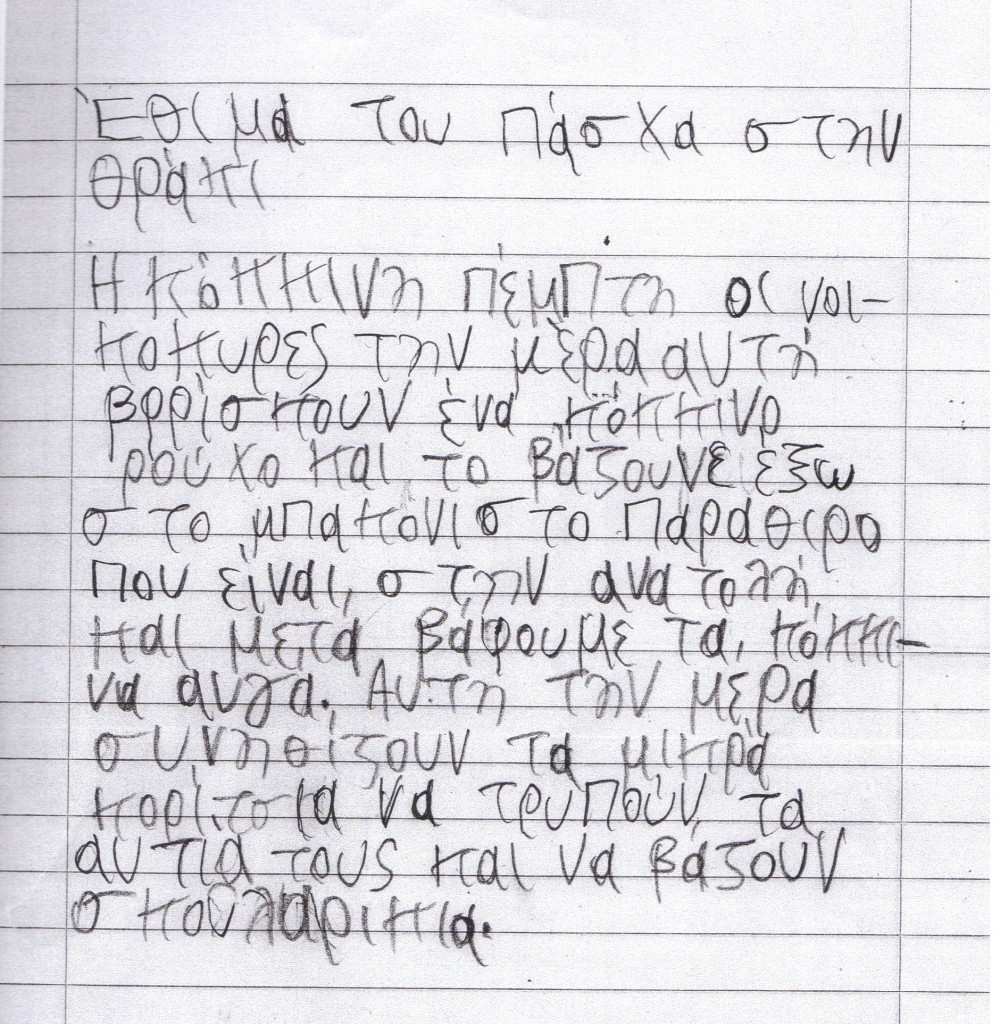 Έθιμα του Πάσχα στην
Θράκι
Η κόκκινη Πέμπτη οι νοι-
κοκυρες την μέρα αυτή
βρρίσκουν ένα κόκκινρ
ρούχο και το βάζουνε έξω
στο μπακόνι στο παράθιρο
που είναι στην ανατολή
και μετά βάφουμε τα κόκκι-
να αυγα. Αυτη την μέρα
συνηθίζουν τα μικρά
κορίτσια να τρυπούν τα
αυτιά τους και να βάζουν
σκουλαρικια.